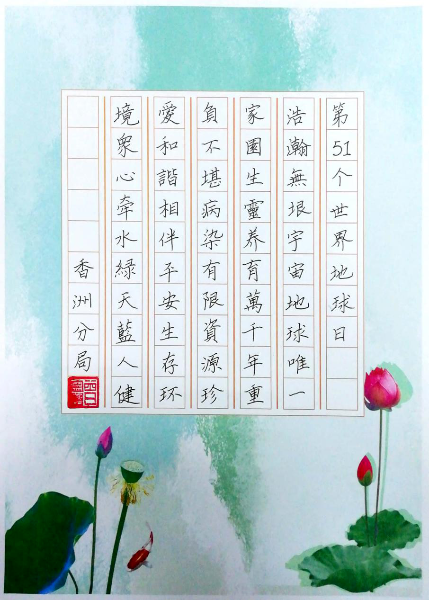 第51个世界地球日
浩瀚無垠宇宙地球唯一
家園生靈养育萬千年重
負不堪病染有限資源珍
愛和諧相伴平安生存环
境衆心牵水綠天藍人健
香洲分局